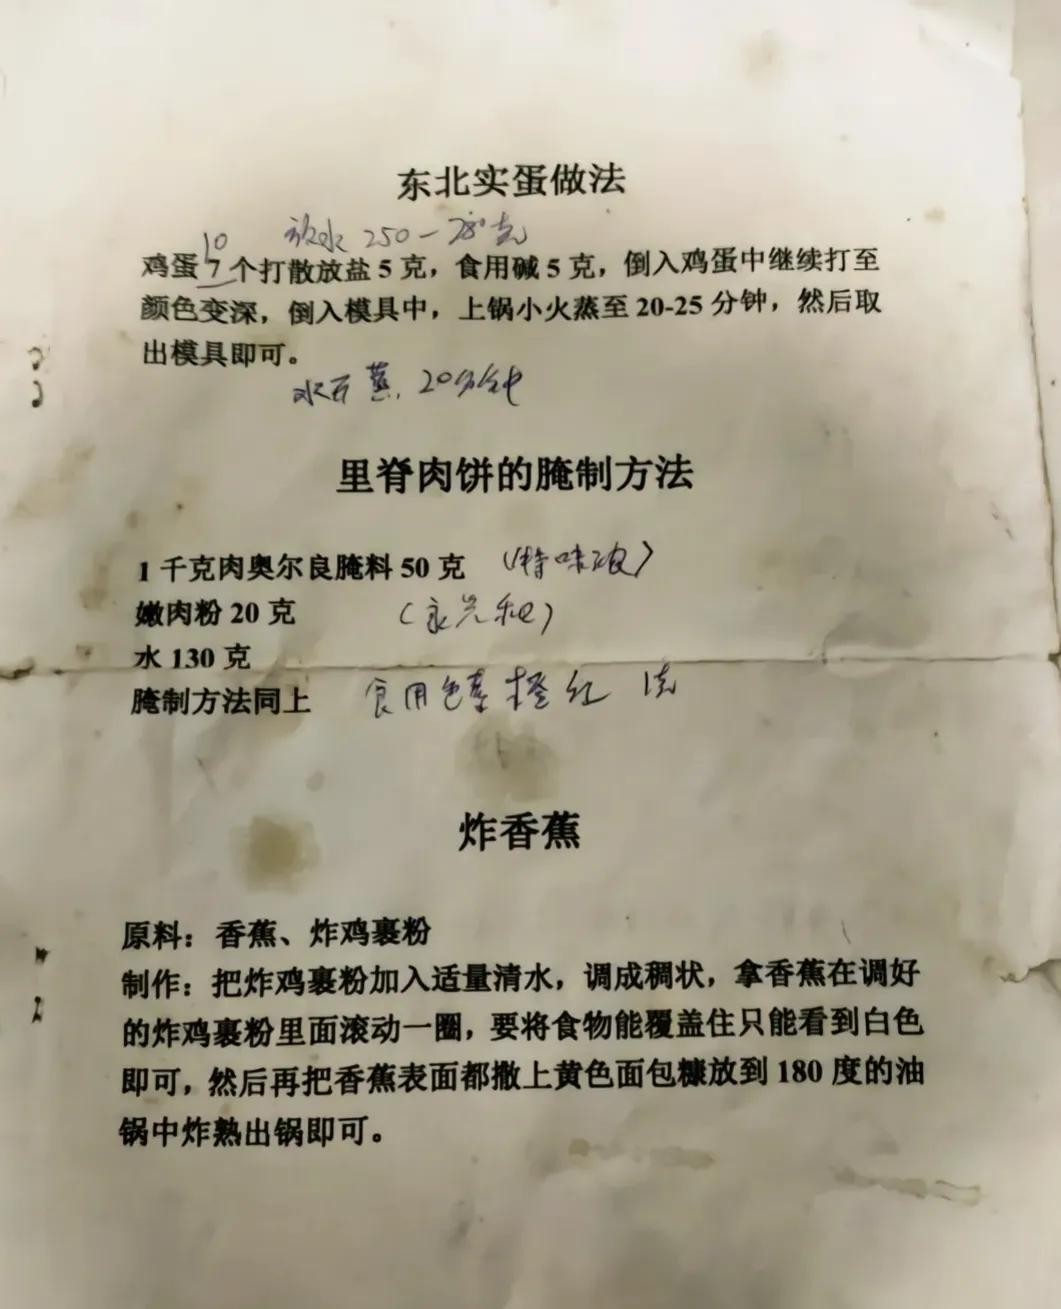 东北实蛋做法
10 放水 250－280克
鸡蛋 7 个打散放盐 5 克，食用碱 5 克，倒入鸡蛋中继续打至
颜色变深，倒入模具中，上锅小火蒸至 20-25 分钟，然后取
出模具即可。
水开蒸. 20分钟
里脊肉饼的腌制方法
1 千克肉奥尔良腌料 50 克 （特味浓）
嫩肉粉 20 克 （永兴和）
水 130 克
腌制方法同上 食用色素 橙红
炸香蕉
原料：香蕉、炸鸡裹粉
制作：把炸鸡裹粉加入适量清水，调成稠状，拿香蕉在调好
的炸鸡裹粉里面滚动一圈，要将食物能覆盖住只能看到白色
即可，然后再把香蕉表面都撒上黄色面包糠放到 180 度的油
锅中炸熟出锅即可。